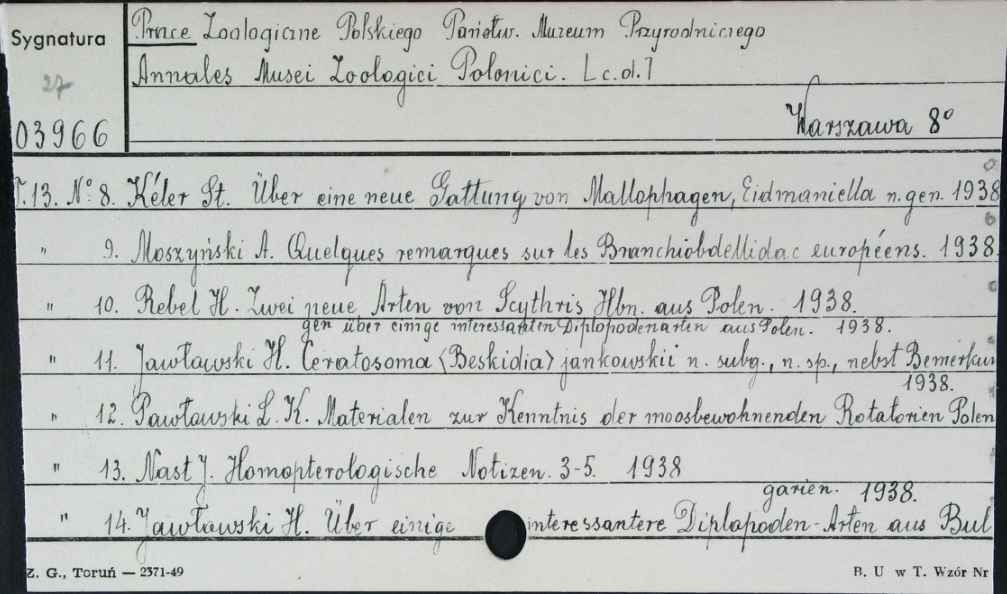 Sygnatura
27
03966
Prace Zoologiczne Polskiego Państw. Muzeum Przyrodniczego
Annales Musei Zoologici Polonici. [c.d.]
Warszawa 8°
T. 13. N° 8. Kéler St. Über eine neue Gattung von Mallophagen, Eidmaniella n. gen. 1938
" 9. Moszyński A. Quelques remarques sur les Branchiobdellidae européens. 1938.
" 10. Rebel H. Zwei neue Arten von Scythris Hbn. aus Polen. 1938.
gen über einige interessanten Diplopodenarten aus Polen. 1938.
" 11. Jawławski H. Ceratosoma (Beskidia) jankowskii n. subg., n. sp., nebst Bemerkun
1938.
" 12. Pawławski L. K. Materialen zur Kenntnis der moosbewohnenden Rotatorien Polen
" 13. Nast J. Homopterologische Notizen. 3-5. 1938
garien. 1938.
" 14. Jawławski H. Über einige interessantere Diplopoden-Arten aus Bul
Z. G., Toruń — 2371-49
B. U w T. Wzór Nr